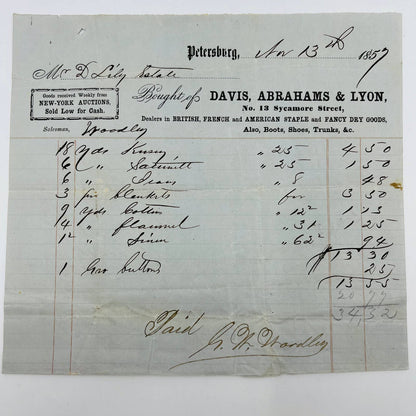 Petersburg, Nov 13th 1857
Mr D Lily Estate
Bought of DAVIS, ABRAHAMS & LYON,
No. 13 Sycamore Street,
Dealers in BRITISH, FRENCH and AMERICAN STAPLE and FANCY DRY GOODS,
Also, Boots, Shoes, Trunks, &c.
Goods received Weekly from
NEW-YORK AUCTIONS,
Sold Low for Cash.
Salesman, Woodley
18 yds Kersey " 25 4 50
6 " Satinett " 25 1 50
6 " " 8 48
3 pr blankets for 3 50
9 yds Cotton " 12½ 1 13
4 " flannel " 31 1 25
1½ " " 62½ 94
13 30
1 Gro buttons 25
13 55
20 77
34,32
Paid
G. W. Woodley